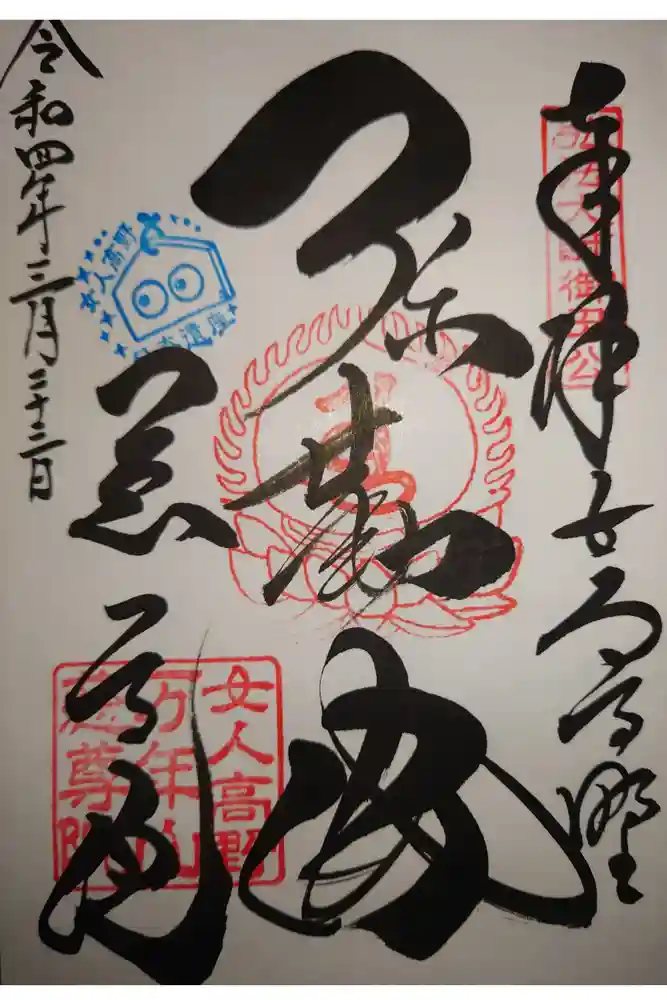 奉拝 女人高野
弘法大師御母公
弥勒
慈尊院
女人高野
万年山
慈尊院
女人高野
日本遺産
令和四年三月二十三日